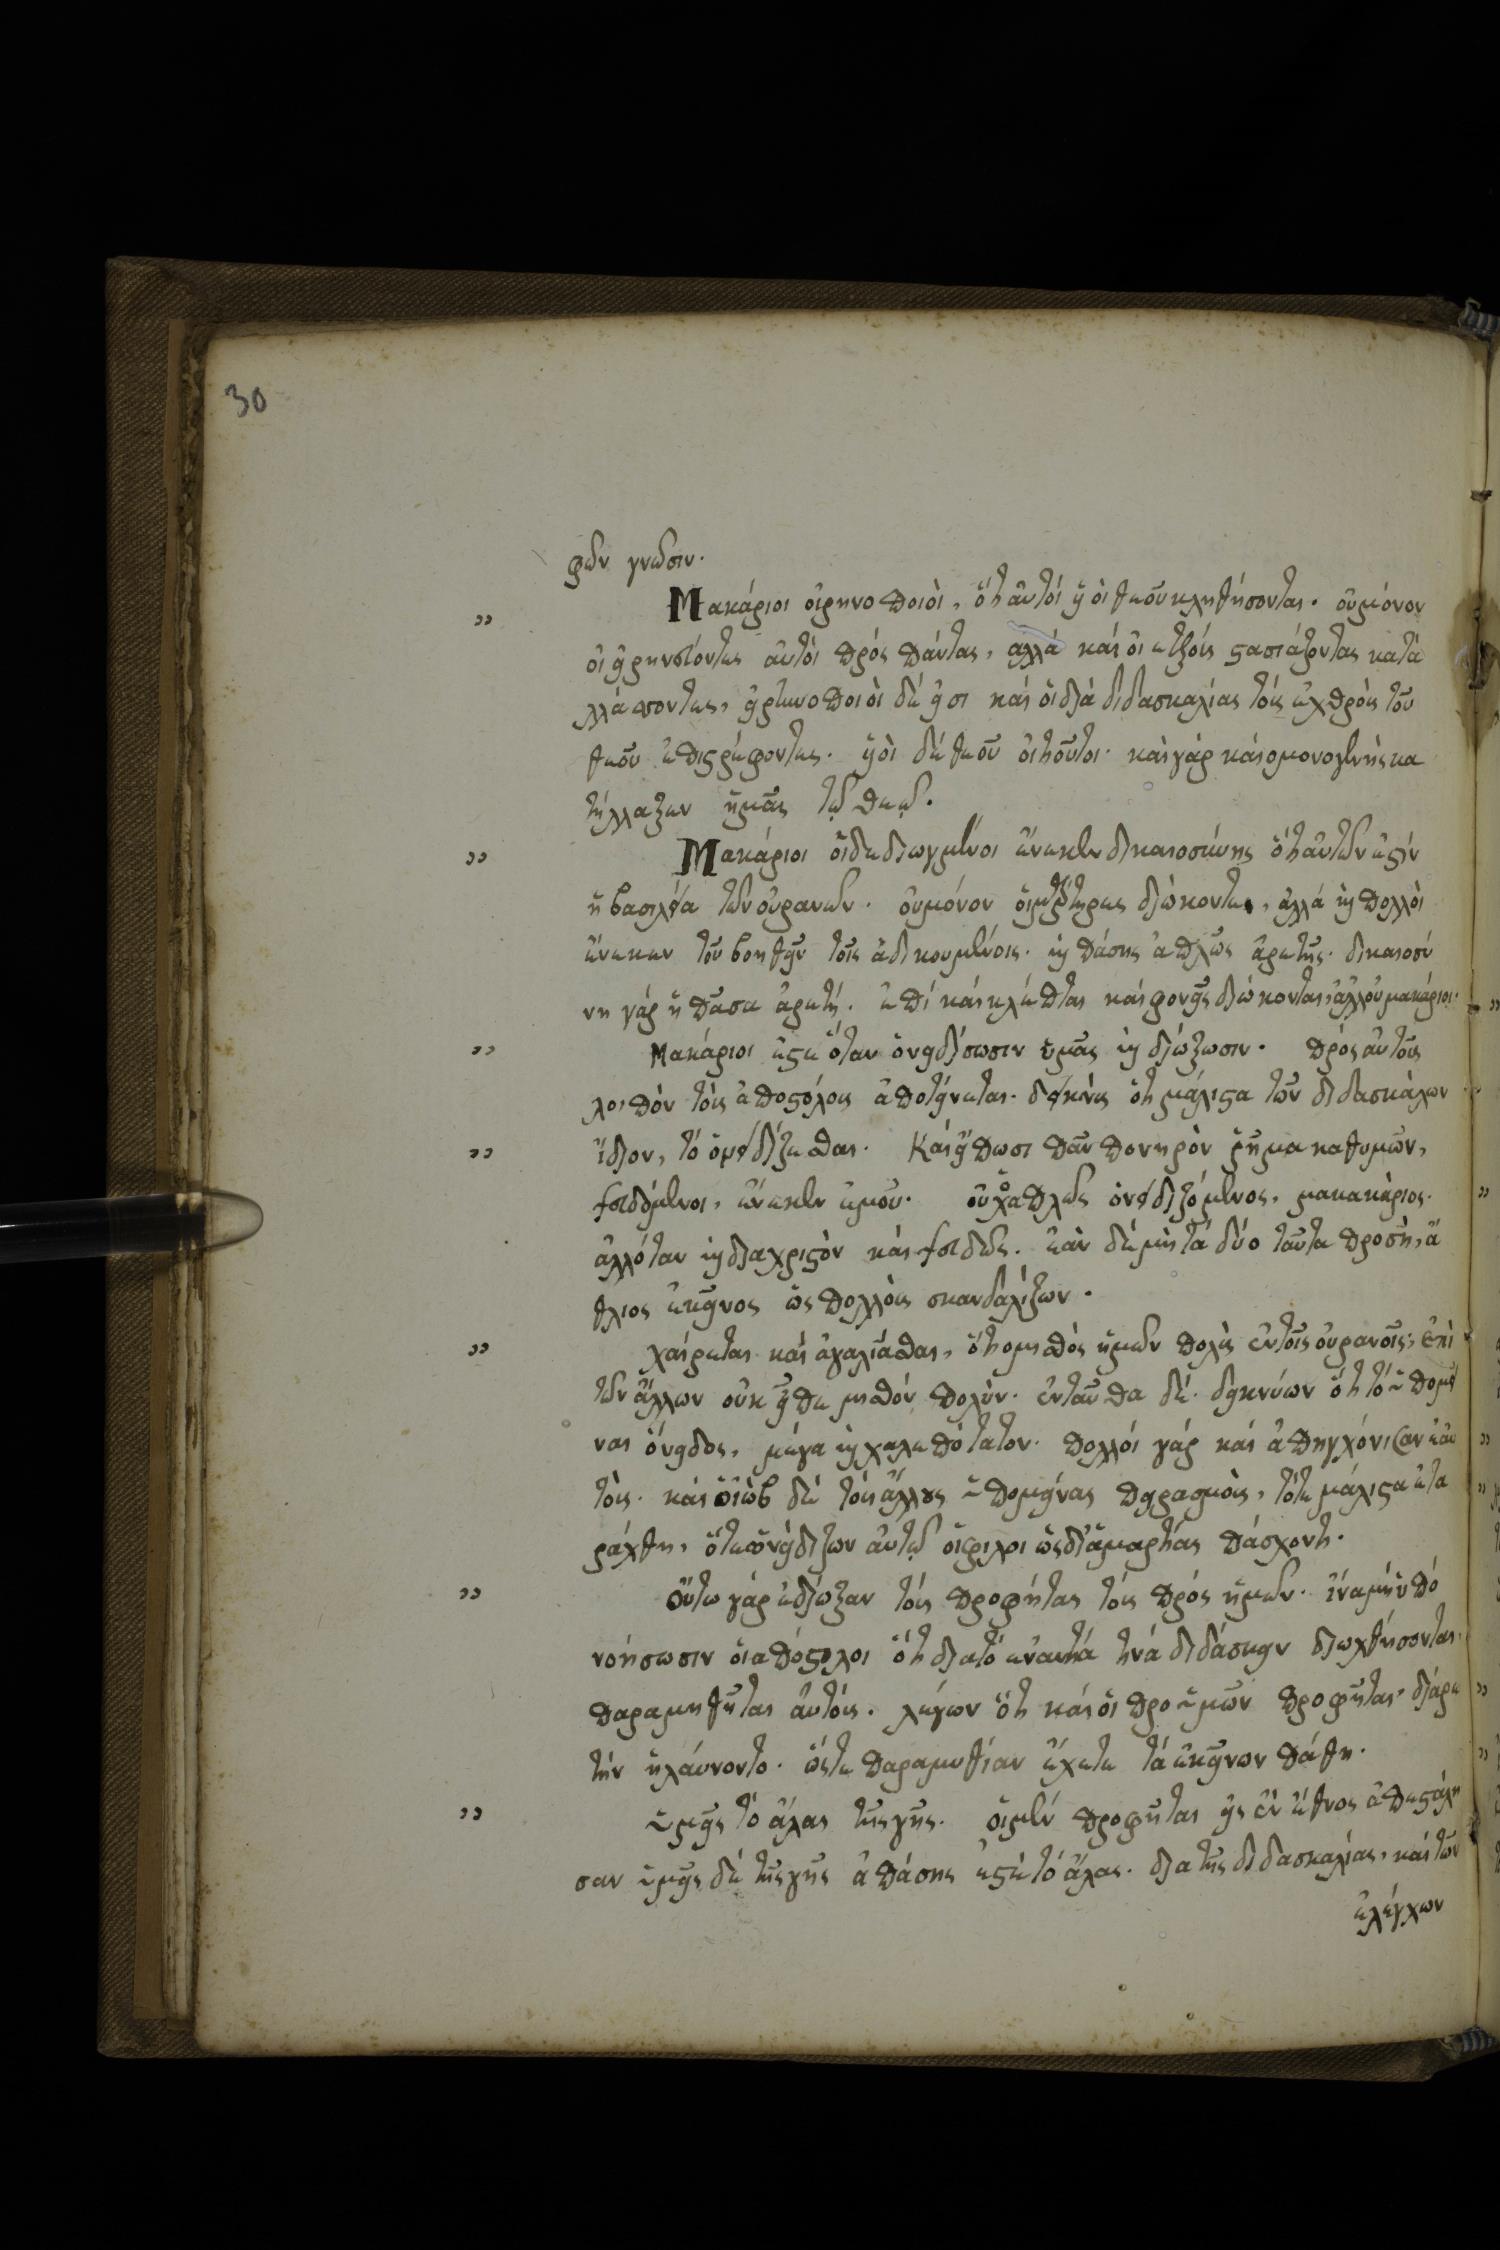 30
φῶν γνῶσιν.
Μακάριοι οἱρηνοποιοὶ, ὅτι αὐτοί ὑοὶ θεοῦ κληθήσονται. οὐ μόνον
οἱ εἰρηνεύοντες αὐτοὶ πρός πάντας, αλλά καί οἱ ετέροις στασιάζοντας κατα
λλάσσοντες, εἰρηνοποιοὶ δέ εἰσι καί οἱ διά διδασκαλίας τούς ἐχθρούς τοῦ
θεοῦ ἐπιστρέφοντες. ὑοὶ δέ θεοῦ οἱ τοῦτοι. καὶ γάρ καί ο μονογενής κα
τήλλαξεν ἡμᾶς τῷ θεῷ.
Μακάριοι οἱ δεδιωγμένοι ἕνεκεν δικαιοσύνης ὅτι αὐτῶν ἐστίν
ἡ βασιλεία τῶν οὐρανῶν. οὐ μόνον οἱ μάρτυρες διώκονται, ἀλλά καὶ πολλοὶ
ἕνεκεν τοῦ βοηθεῖν τοῖς ἀδικουμένοις. καὶ πάσης ἁπλῶς ἀρετῆς. δικαιοσύ
νη γάρ ἡ πᾶσα ἀρετή. ἐπί καί κλέπται καί φονεῖς διώκονται, ἀλλ οὐ μακάριοι.
Μακάριοι ἐστε ὅταν ὀνειδίσωσιν ὑμᾶς καὶ διώξωσιν. πρός αὐτούς
λοιπόν τούς ἀποστόλους ἀποτείνεται. δεικνύς ὅτι μάλιστα τῶν διδασκάλων
ἴδιον, τό ὀνειδίζεσθαι. Καί εἴπωσι πᾶν πονηρόν ῥῆμα καθ υμῶν,
ψευδόμενοι, ἕνεκεν ἐμοῦ. οὐχ ὁ ἁπλῶς ὀνειδιζόμενος, μακακάριος.
ἀλλ ὅταν καὶ διά χριστόν καί ψευδῶς. ἐάν δέ μή τά δύο ταῦτα προσῆ, ἄ
θλιος ἐκεῖνος ὡς πολλούς σκανδαλίζων.
χαίρεται καί ἀγαλιάσθαι, ὅτι ο μισθός ἡμῶν πολύς ἐν τοῖς οὐρανοῖς, ἐπὶ
τῶν ἄλλων οὐκ εἶπε μισθόν πολύν. ἐνταῦθα δέ. δεικνύων ὅτι τό ὑπομεῖ
ναι ὄνειδος, μέγα καὶ χαλεπότατον. πολλοί γάρ καί ἀπηγχόνισαν ἑαυ
τούς. καί ὁ ἰώβ δέ τούς ἄλλους ὑπομείνας πειρασμούς, τότε μάλιστα ἐτα
ράχθη, ὅτε ὠνείδιζον αὐτῷ οἱ φίλοι ὡς δι ἁμαρτίας πάσχοντι.
οὕτω γάρ ἐδίωξαν τούς προφήτας τούς πρός ἡμῶν. ἵνα μή ὑπο
νοήσωσιν οἱ απόστολοι ὅτι διατό ἐναντία τινά διδάσκειν διωχθήσονται.
παραμηθῆται αὐτούς. λέγων ὅτι καί οἱ προ ὑμῶν προφῆται, διάρε
τήν ἠλαύνοντο. ὥστε παραμυθίαν ἔχετε τά ἐκείνων πάθη.
ὑμεῖς τό ἅλας τῆς γῆς. οἱ μέν προφῆται εἰς ἕν ἔθνος ἀπεστάλη
σαν ὑμεῖς δέ τῆς γῆς ἁπάσης ἐστέ τό ἅλας. δια τῆς διδασκαλίας, καί τῶν
ἐλέγχων